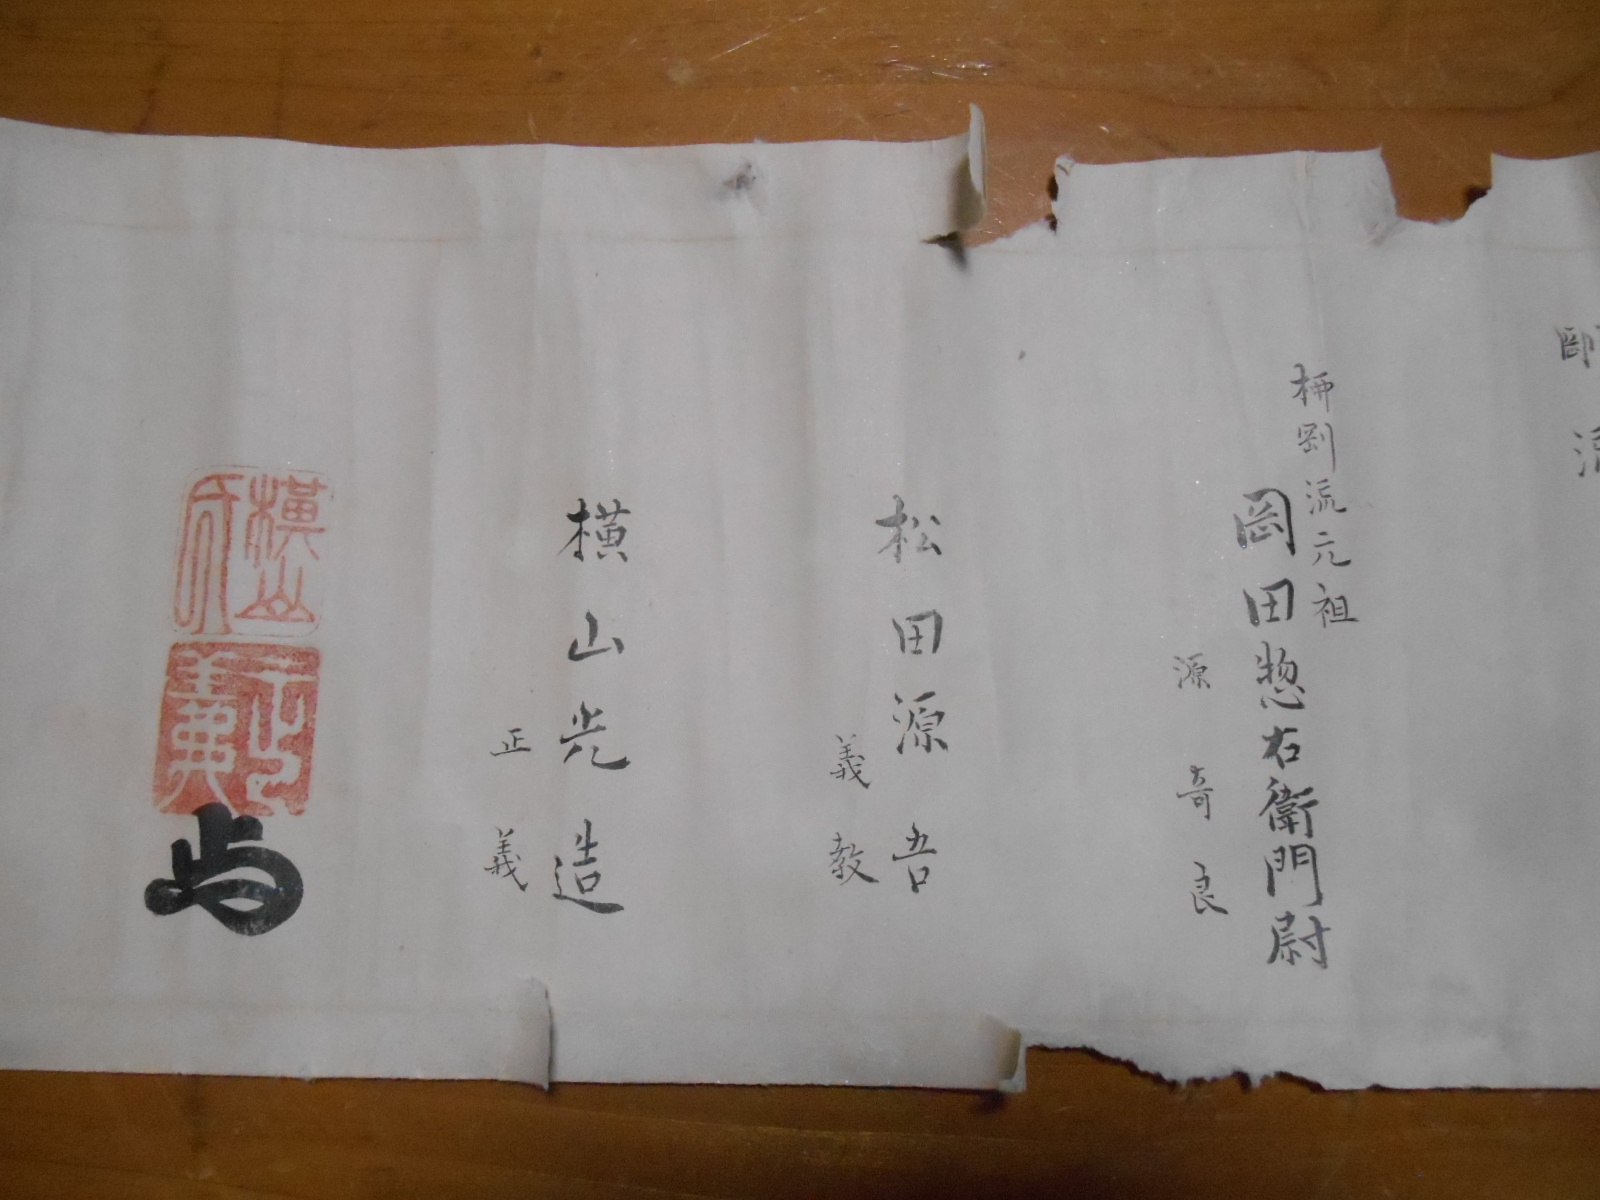 剛流
柳剛流元祖
岡田惣右衛門尉
源奇良
松田源吾
義教
横山光造
正義
横山
氏
正
義